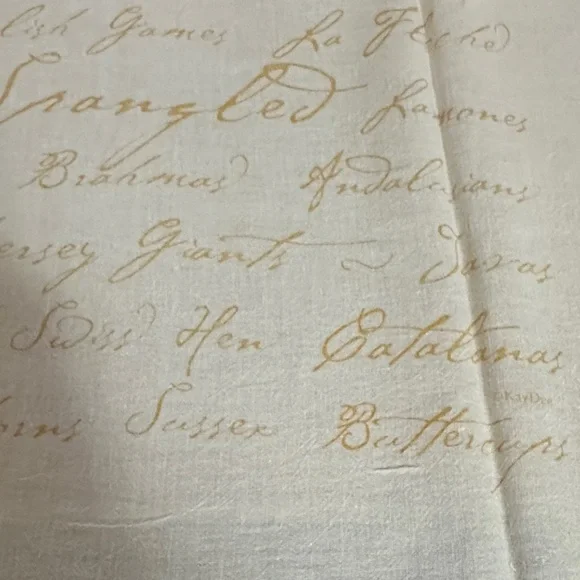 lish Games La Fleche
Spangled Lamones
Brahmas Andalusians
ersey Giants ~ Javas
Swiss Hen Catalanas
©KayDee
rns Sussex Buttercups